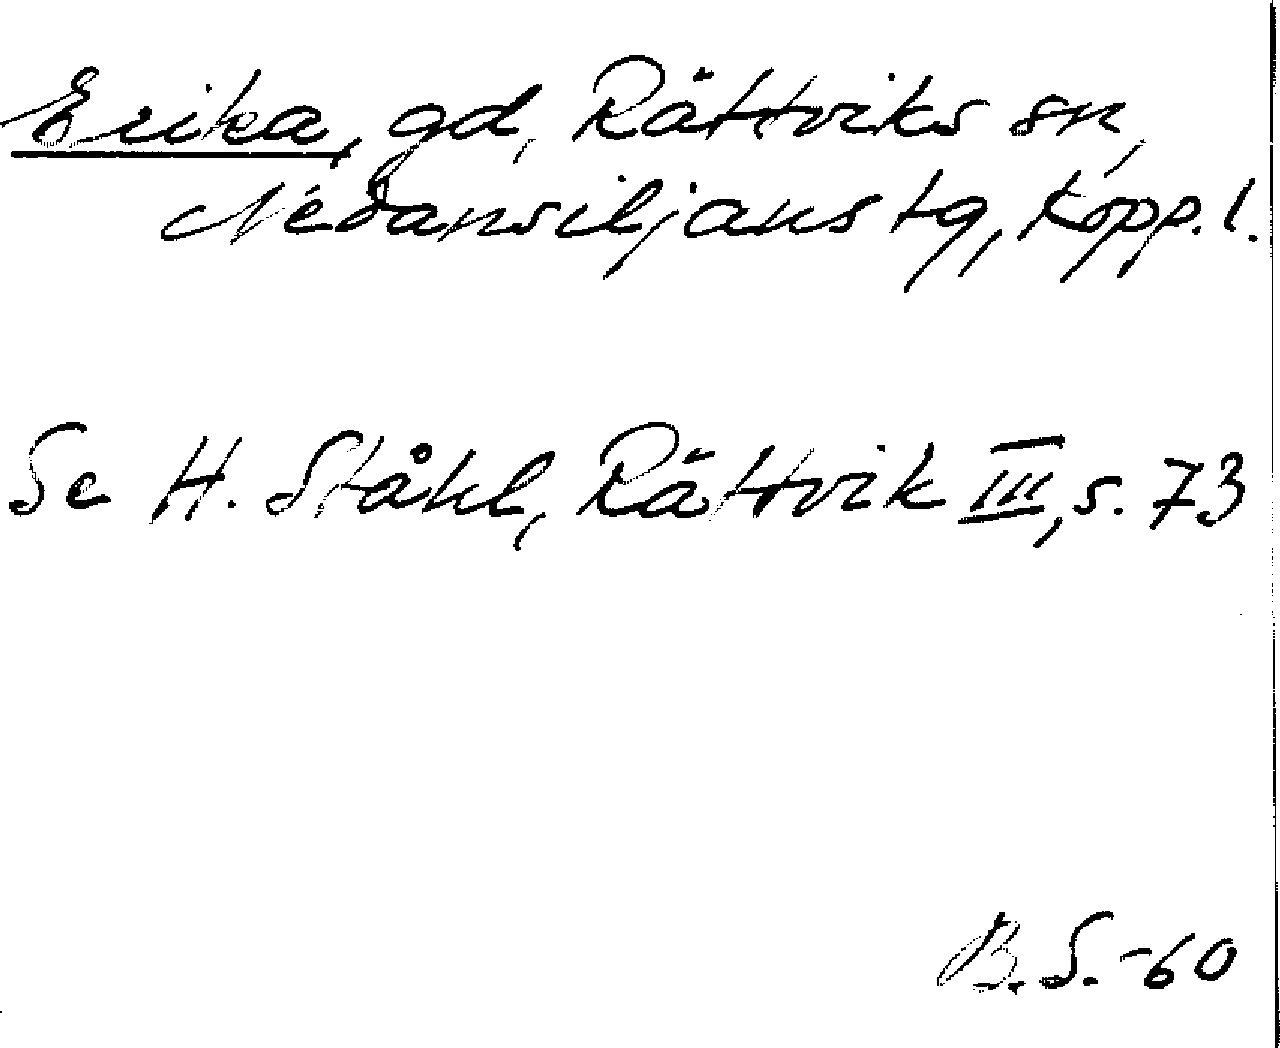 Erika, gd, Rättviks sn,
Nedansiljans tg, Kopp. l.
Se H. Ståhl, Rättvik III, s. 73
B. S. -60